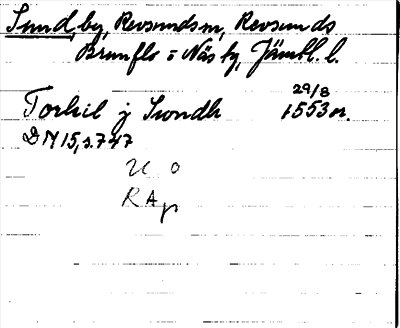 Sund, by, Revsunds sn, Revsunds
Brunflo o Näs tg, Jämtl. l.
29/8
Torkil j Swndh 1553 or.
DN 15, s. 747
U o
RAp